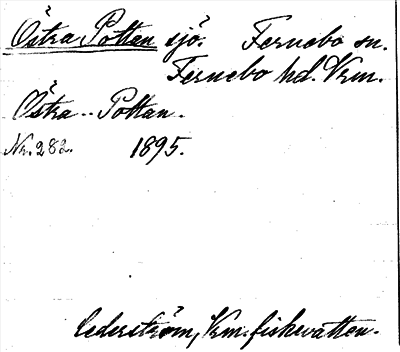 Östra Pottan sjö. Fernebo sn.
Fernebo hd. Vrm.
Östra-Pottan.
Nr. 282. 1895.
Cederström, Vrm. fiskevatten.